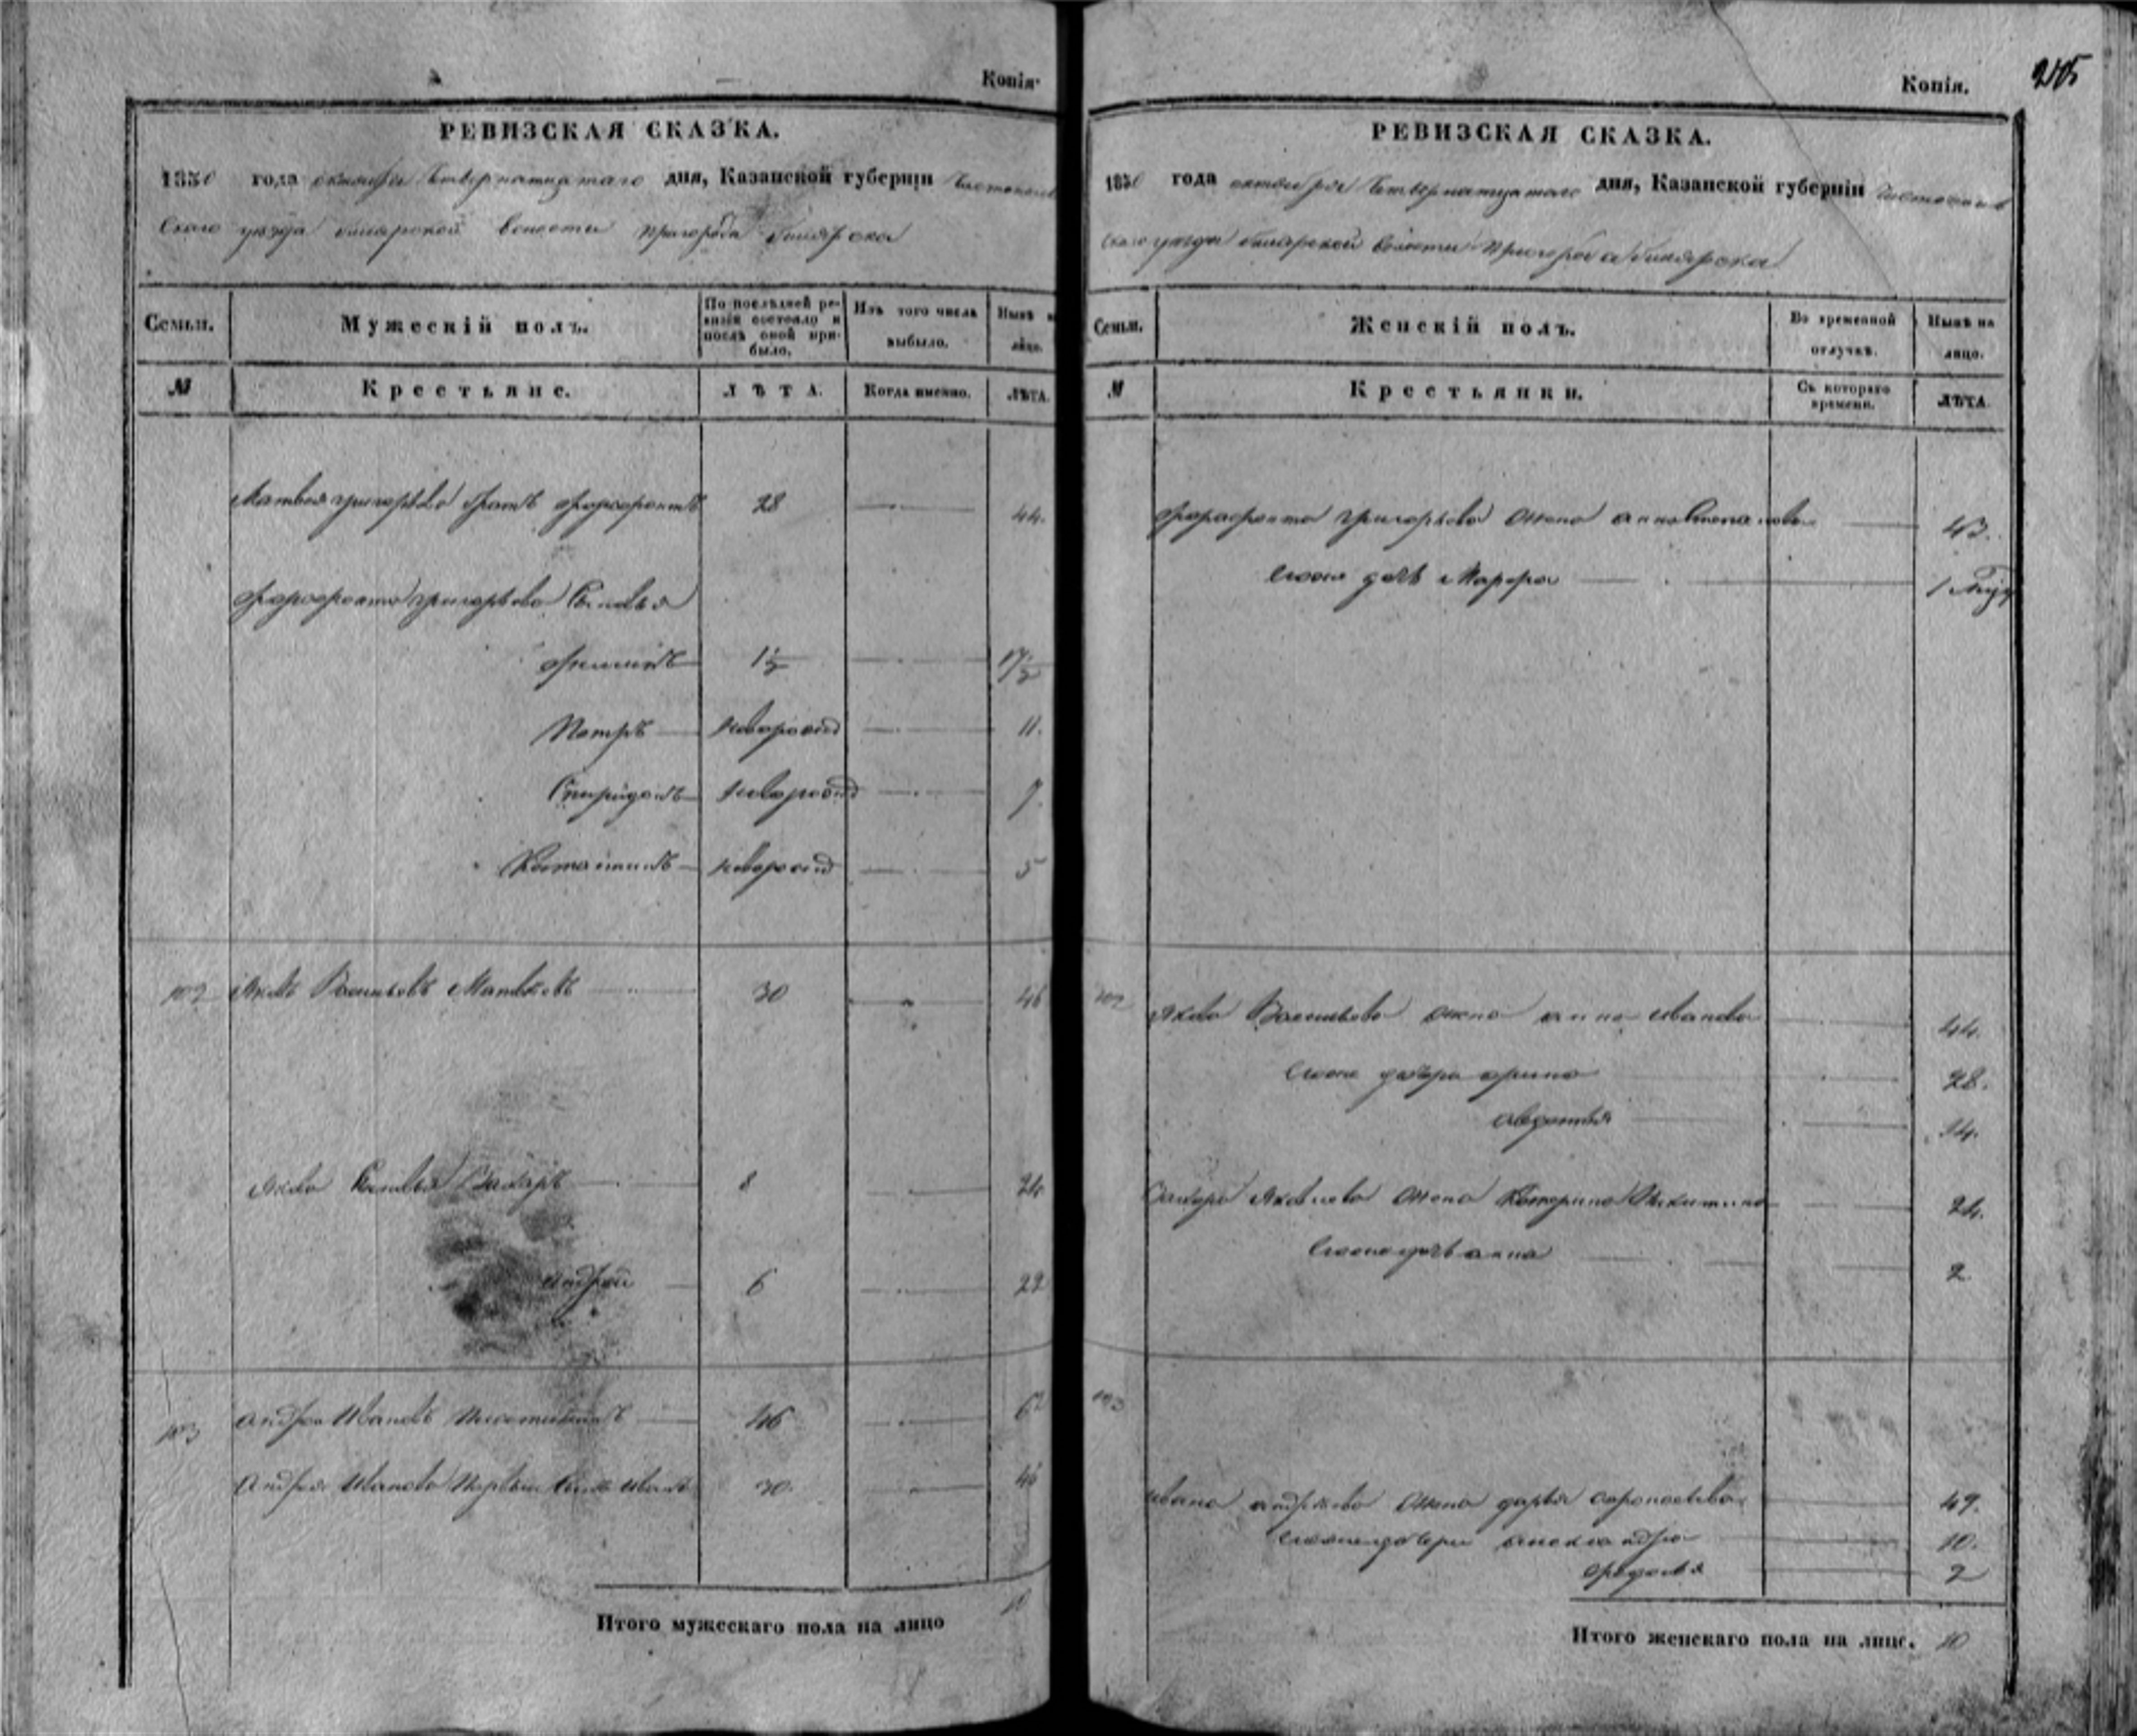 Копія.
РЕВИЗСКАЯ СКАЗКА.
1850 года октября четвернатцатаго дня, Казанской губерніи Чистополь
скаго уезда билярской волости пригорода билярска
Семьи. Мужескій полъ. По послѣдней ревизіи состояло и послѣ оной прибыло. Изъ того числа выбыло. Нынѣ на лицо.
№ Крестьяне. ЛѢТА. Когда именно. ЛѢТА.
Матвея григорьева братъ Ферафонтъ 28 44.
Ферафонта григорьева Сыновья
1½ 17½
Петръ новорожд 11.
Спиридонъ новорожд 7.
Костантинъ новорожд 5
102 Яковъ Васильевъ 30 46
Якова Сыновья Захаръ 8 24
Андрей 6 22
103 Андрей Ивановъ 46
Андрея Иванова первый Сынъ Иванъ 30. 46
Итого мужескаго пола на лицо 10
205
Копія.
РЕВИЗСКАЯ СКАЗКА.
1850 года октября четвернатцатаго дня, Казанской губерніи Чистополь
скаго уезда билярской волости пригорода билярска
Семьи. Женскій полъ. Во временной отлучкѣ. Нынѣ на лицо.
№ Крестьянки. Съ котораго времени. ЛѢТА.
Ферафонта григорьева жена анна Степанова 43.
дочь Марфа 1
102 Якова Васильева жена анна иванова 44.
дочери арина 28.
авдотья 14.
Захара Яковлева жена Катерина Никитина 24.
дочь анна 2
103
ивана андреева жена дарья 49.
дочери 10.
федосья 2
Итого женскаго пола на лицо. 10